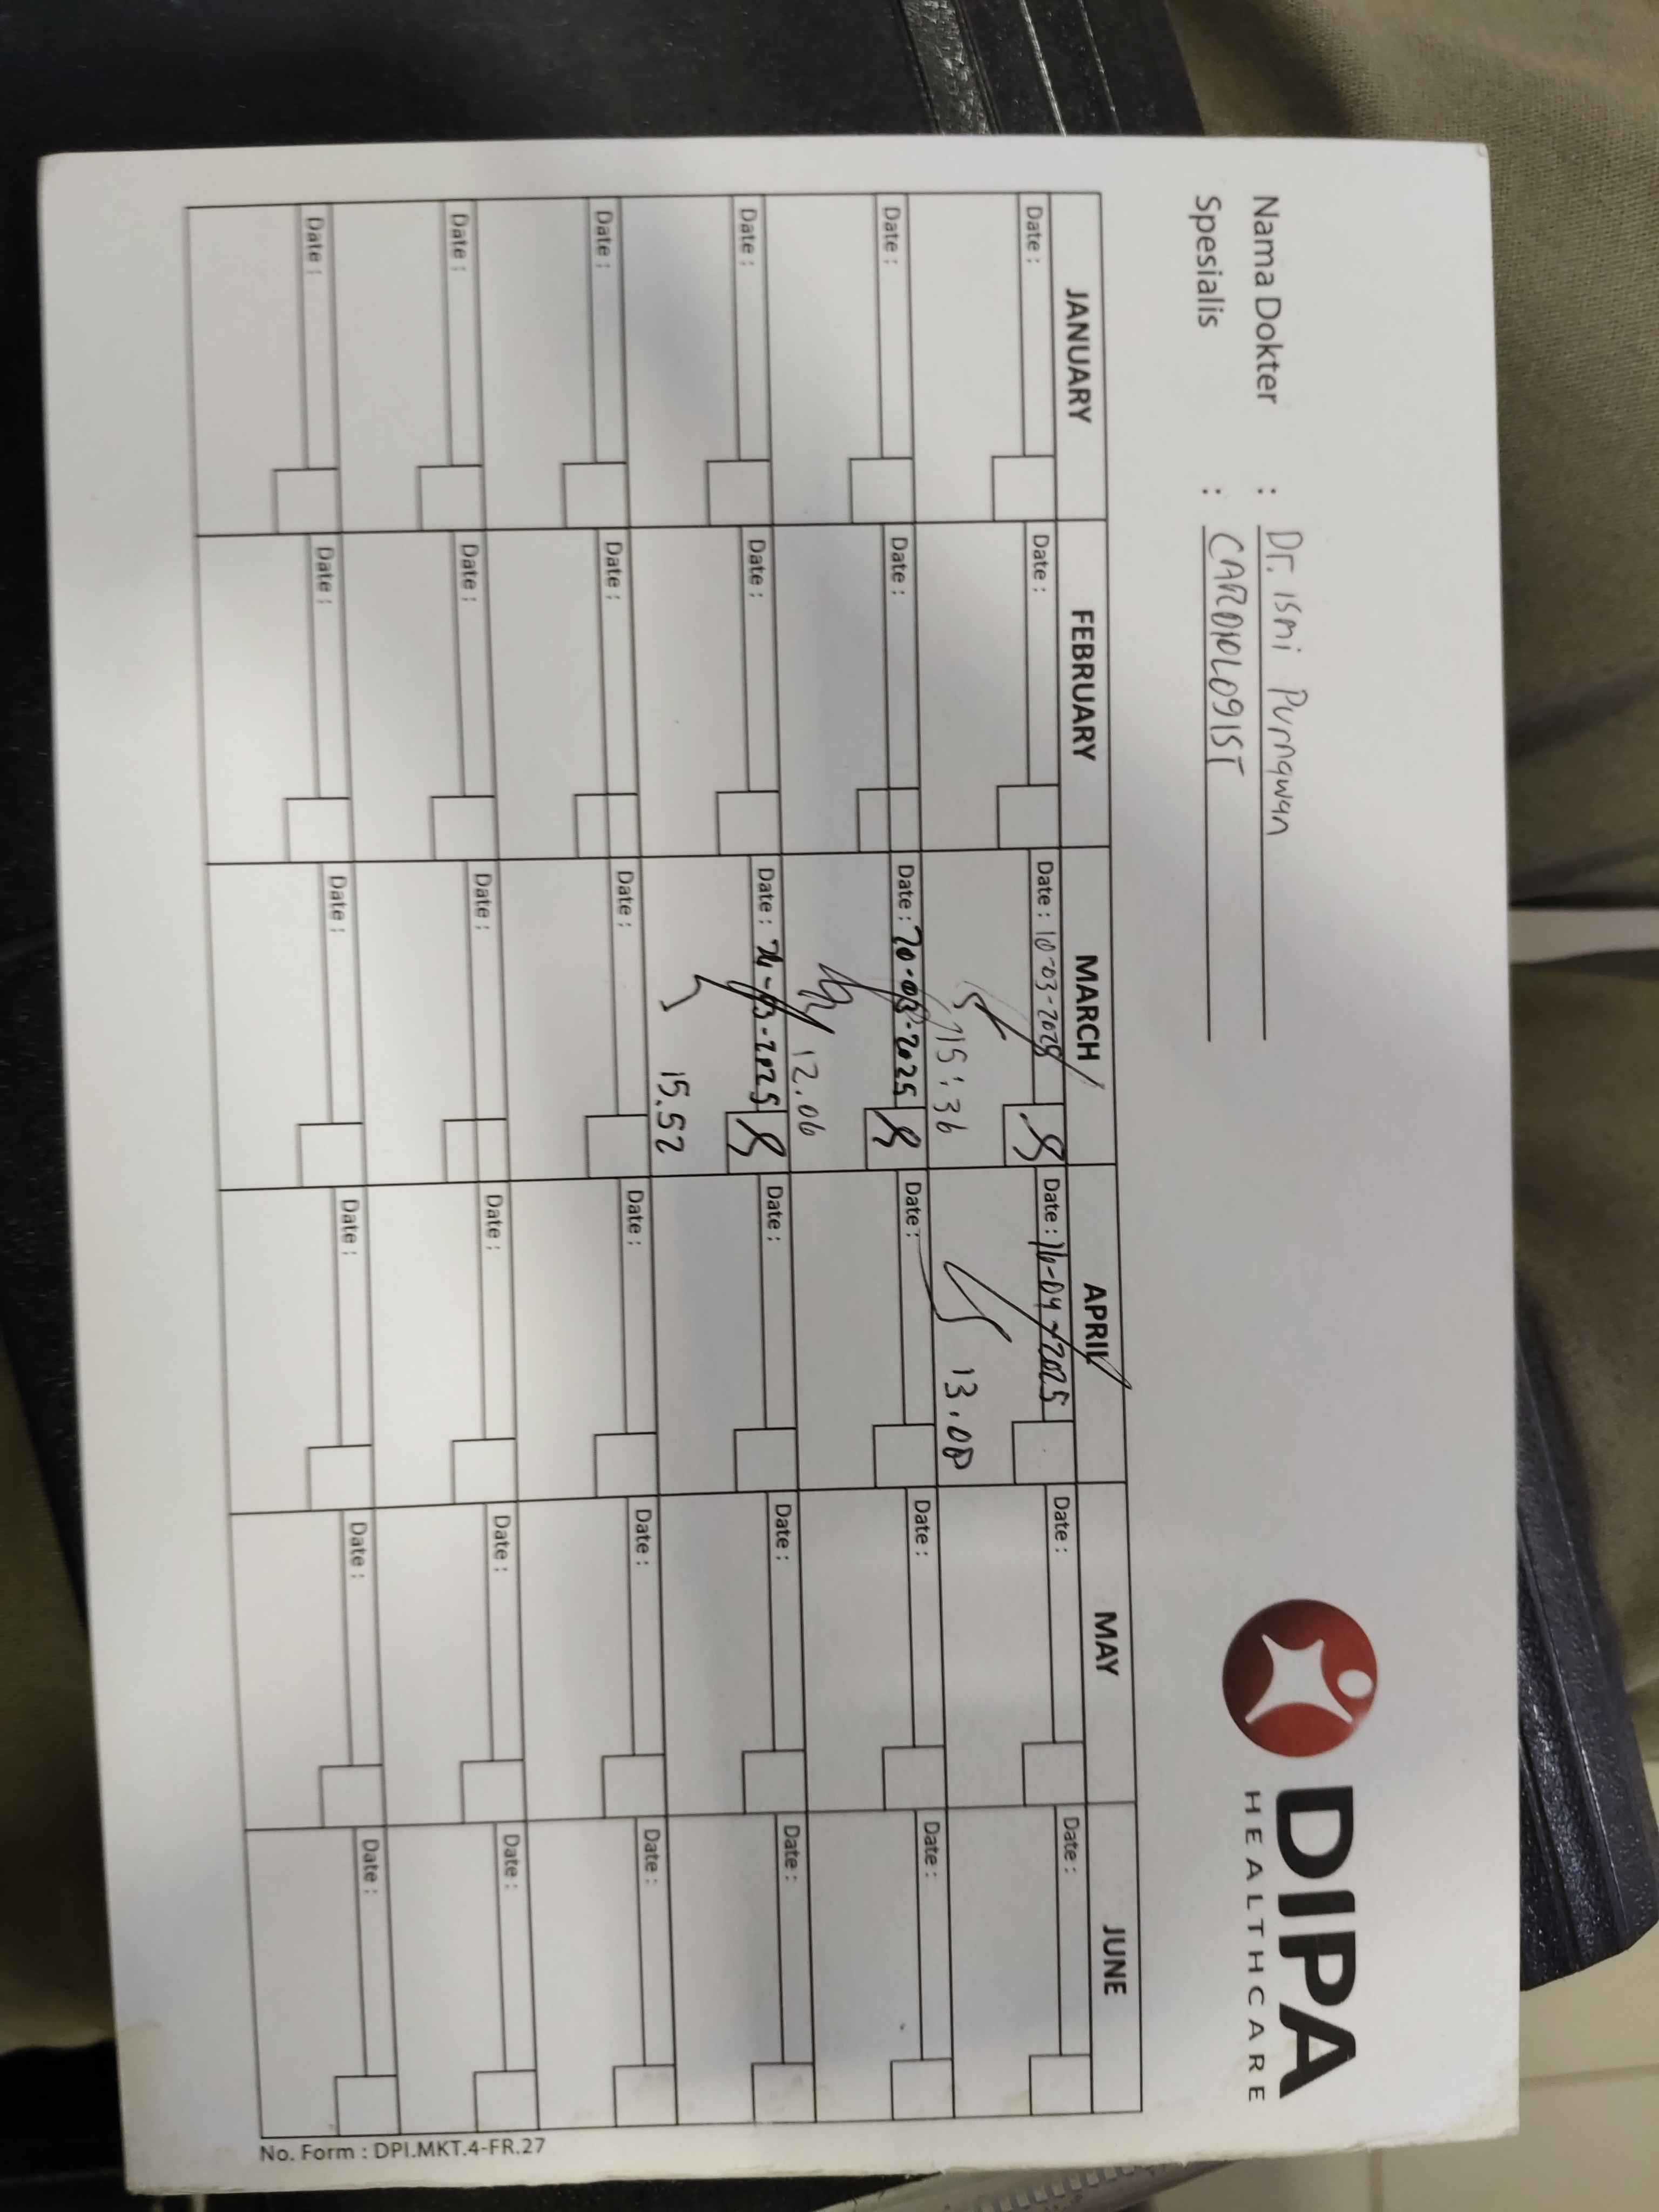 DIPA
HEALTHCARE
Nama Dokter : Dr. ismi Purnawan
Spesialis : CARDIOLOGIST
JANUARY FEBRUARY MARCH APRIL MAY JUNE
Date : Date : Date : 10-03-2025 Date : 16-04-2025 Date : Date :
15:36 13.00
Date : Date : Date : 20-03-2025 Date : Date : Date :
12.06
Date : Date : Date : 24-03-2025 Date : Date : Date :
15.52
Date : Date : Date : Date : Date : Date :
Date : Date : Date : Date : Date : Date :
Date : Date : Date : Date : Date : Date :
No. Form : DPI.MKT.4-FR.27